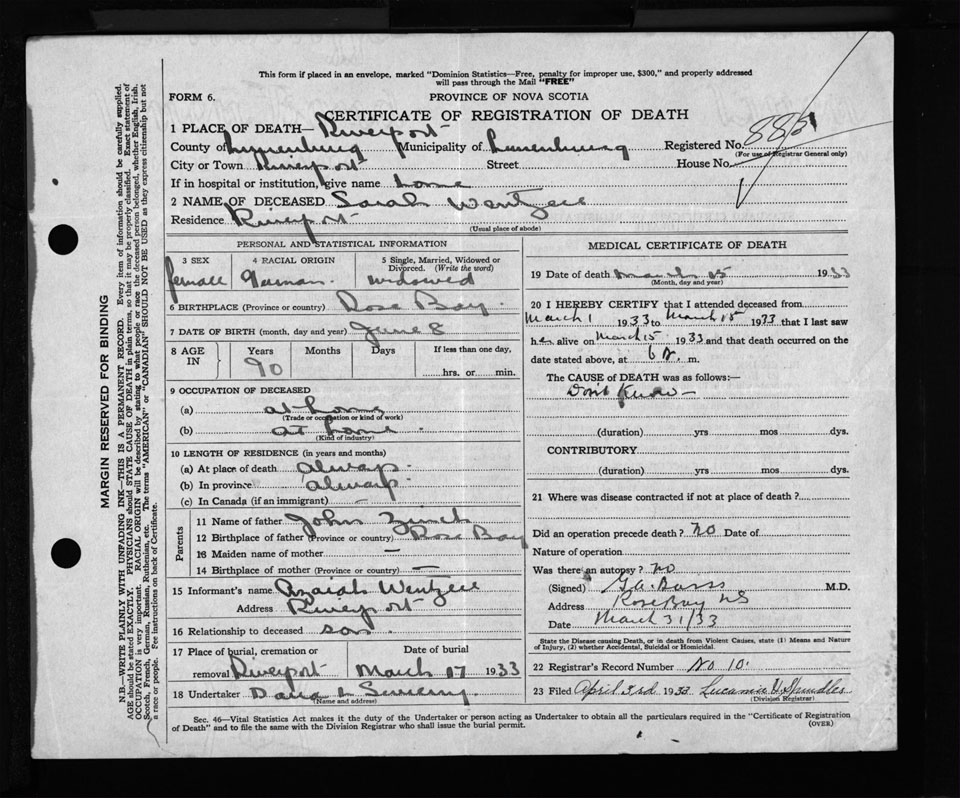 This form if placed in an envelope, marked "Dominion Statistics—Free, penalty for improper use, $300," and properly addressed
will pass through the Mail "FREE"
FORM 6.
PROVINCE OF NOVA SCOTIA
CERTIFICATE OF REGISTRATION OF DEATH
1 PLACE OF DEATH— Riverport
County of Lunenburg Municipality of Lunenburg Registered No.
(For use of Registrar General only)
City or Town Riverport Street House No.
If in hospital or institution, give name home
2 NAME OF DECEASED Sarah Wentzell
Residence Riverport
(Usual place of abode)
PERSONAL AND STATISTICAL INFORMATION
3 SEX 4 RACIAL ORIGIN 5 Single, Married, Widowed or
Divorced. (Write the word)
female German widowed
6 BIRTHPLACE (Province or country) Rose Bay
7 DATE OF BIRTH (month, day and year) June 8
8 AGE IN Years Months Days If less than one day,
90 hrs. or min.
9 OCCUPATION OF DECEASED
(a) at home
(Trade or occupation or kind of work)
(b) at home
(Kind of industry)
10 LENGTH OF RESIDENCE (in years and months)
(a) At place of death always
(b) In province always
(c) In Canada (if an immigrant) —
Parents
11 Name of father John Zinck
12 Birthplace of father (Province or country) Rose Bay
13 Maiden name of mother —
14 Birthplace of mother (Province or country) —
15 Informant's name Azaiah Wentzell
Address Riverport
16 Relationship to deceased son
17 Place of burial, cremation or Date of burial
removal Riverport March 17 1933
18 Undertaker
(Name and address)
MEDICAL CERTIFICATE OF DEATH
19 Date of death March 15 1933
(Month, day and year)
20 I HEREBY CERTIFY that I attended deceased from
March 1 1933 to March 15 1933 that I last saw
her alive on March 15 1933 and that death occurred on the
date stated above, at 6 m.
The CAUSE OF DEATH was as follows:—
Don't Know —
(duration) yrs mos dys.
CONTRIBUTORY
(duration) yrs mos dys.
21 Where was disease contracted if not at place of death?
Did an operation precede death? NO Date of
Nature of operation
Was there an autopsy? no
(Signed) M.D.
Address Rose Bay NS
Date March 31/33
State the Disease causing Death, or in death from Violent Causes, state (1) Means and Nature
of Injury, (2) whether Accidental, Suicidal or Homicidal.
22 Registrar's Record Number No 10.
23 Filed April 3rd 1933
(Division Registrar)
Sec. 46—Vital Statistics Act makes it the duty of the Undertaker or person acting as Undertaker to obtain all the particulars required in the "Certificate of Registration
of Death" and to file the same with the Division Registrar who shall issue the burial permit.
(OVER)
MARGIN RESERVED FOR BINDING
N.B.—WRITE PLAINLY WITH UNFADING INK—THIS IS A PERMANENT RECORD. Every item of information should be carefully supplied.
AGE should be stated EXACTLY. PHYSICIANS should STATE CAUSE OF DEATH in plain terms, so that it may be properly classified. Exact statement of
OCCUPATION is very important. RACIAL ORIGIN will be described by stating to what people or race the deceased person belonged, whether English, Irish,
Scotch, French, German, Russian, Ruthenian, etc. The terms "AMERICAN" or "CANADIAN" SHOULD NOT BE USED as they express citizenship but not
a race or people. See instructions on back of Certificate.